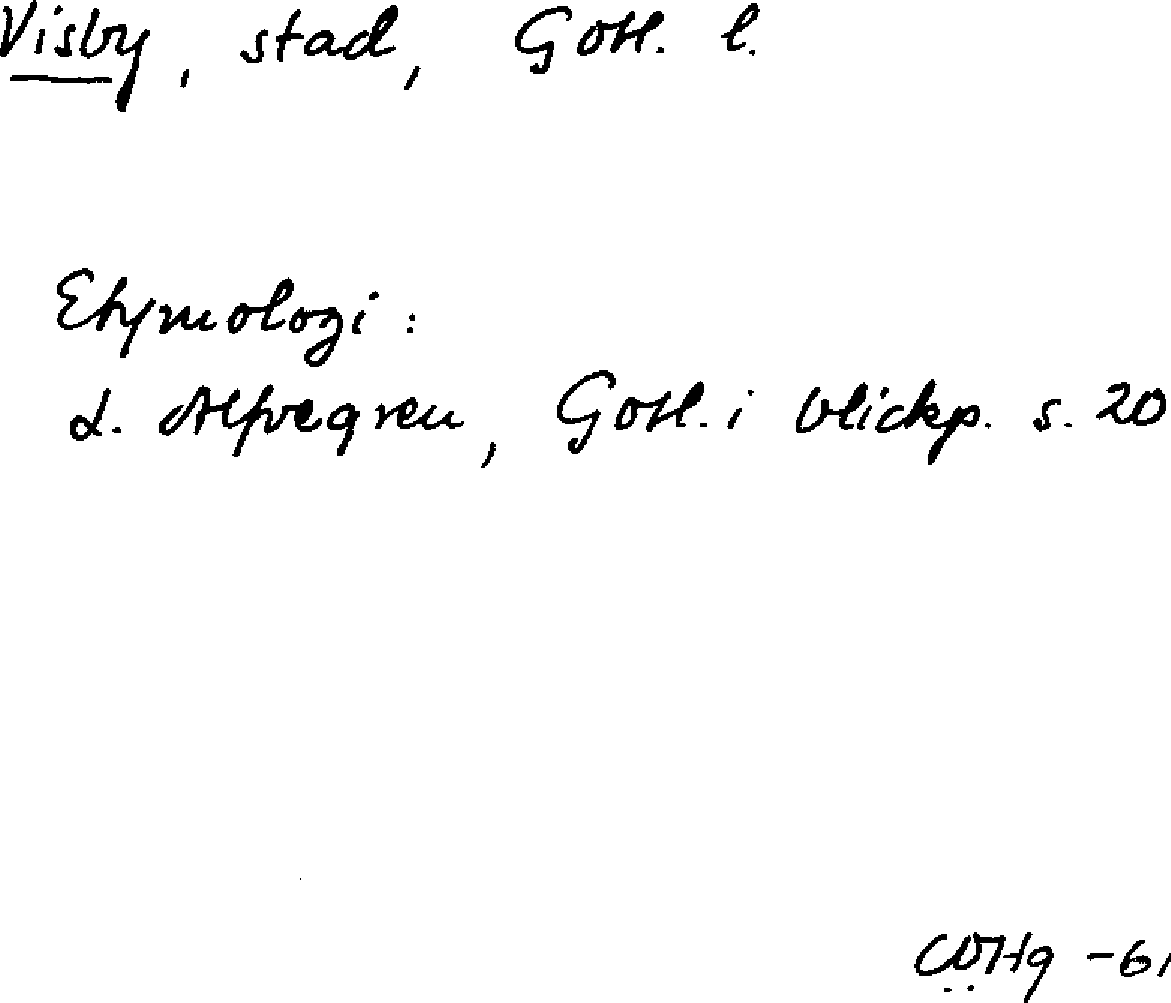 Visby, stad, Gotl. l.
Etymologi:
L. Alfvegren, Gotl. i blickp. s. 20
-61